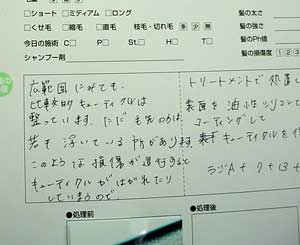 □ショート □ミディアム □ロング
□くせ毛 □縮毛 □直毛 枝毛・切れ毛 多 少 無
今日の施術 C□ P□ St.□ H□ T□
シャンプー剤
髪の太さ
髪の強さ
髪のPh値
髪の損傷度 1 2 3
広範囲にみても、
比較的キューティクルは
整っています。ただ毛先の方は
若干浮いている所があります。
このような損傷が進行すると
キューティクルがはがれたり
してしまうので、
トリートメントで処置し
表面を油性シリコンで
コーティングして
キューティクルを
●処理前
●処理後